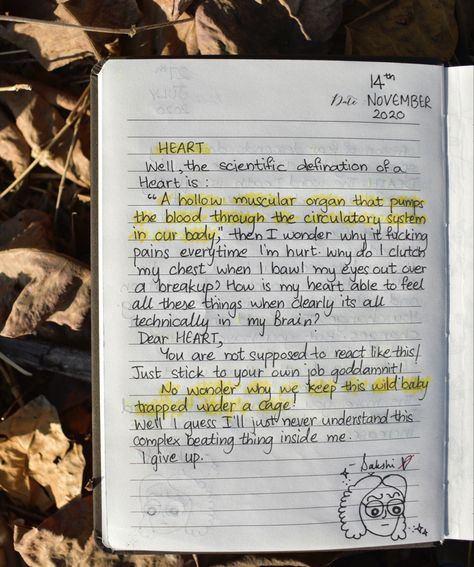 14th
Date: NOVEMBER
2020
HEART
Well, the scientific defination of a
Heart is :
"A hollow muscular organ that pumps
the blood through the circulatory system
in our body," then I wonder why it fucking
pains everytime I'm hurt. Why do I clutch
my chest when I bawl my eyes out over
a breakup? How is my heart able to feel
all these things when clearly its all
technically in my Brain?
Dear HEART,
You are not supposed to react like this!
Just stick to your own job goddamnit!
No wonder why we keep this wild baby
trapped under a cage!
Well I guess I'll just never understand this
complex beating thing inside me.
I give up.
- Sakshi